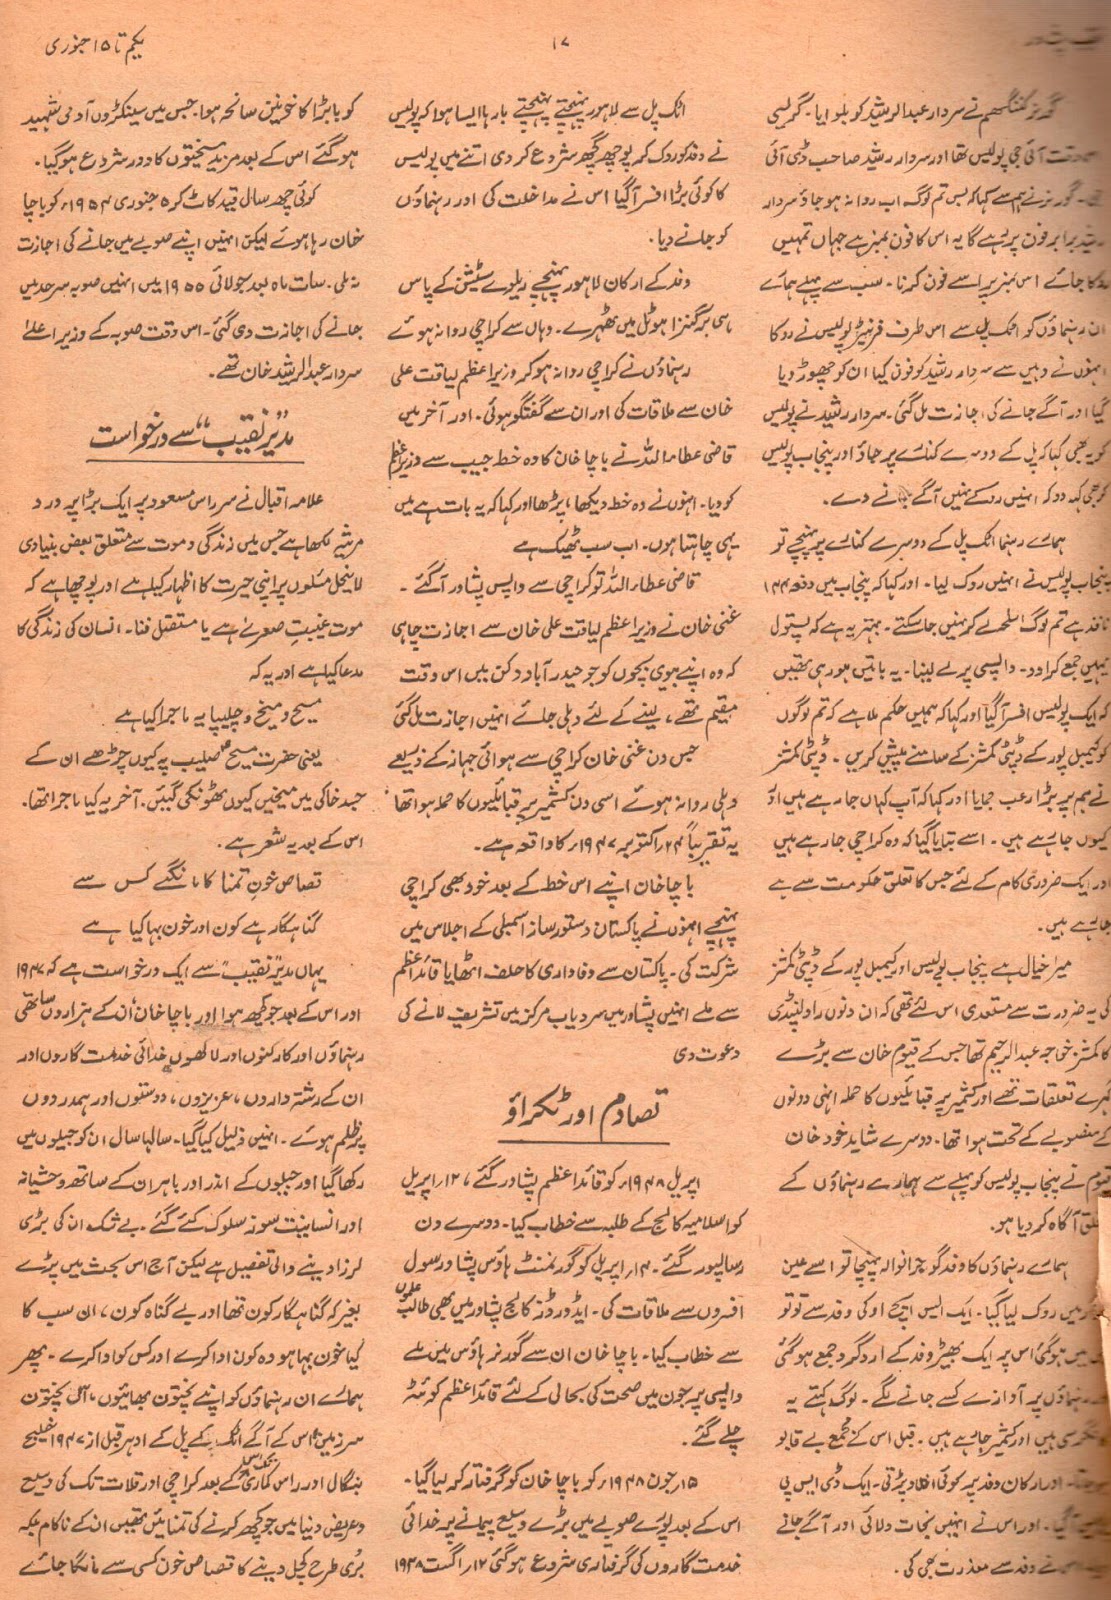 ۱۷
یکم تا ۱۵ جنوری
گورنر کننگھم نے سردار عبدالرشید کو بلوایا۔ گریسی
وقت آئی جی پولیس تھا اور سردار رشید صاحب ڈی آئی
گورنر نے ہم سے کہا کہ بس تم لوگ اب روانہ ہو جاؤ سردار
رشید برابر فون پر رہے گا یہ اس کا فون نمبر ہے جہاں تمہیں
روکا جائے اس نمبر پر اسے فون کرنا۔ سب سے پہلے ہمارے
ان رہنماؤں کو اٹک پل سے اس طرف فرنٹیر پولیس نے روکا
انہوں نے وہیں سے سردار رشید کو فون کیا ان کو چھوڑ دیا
گیا اور آگے جانے کی اجازت مل گئی۔ سردار رشید نے پولیس
کو یہ بھی کہا کہ پل کے دوسرے کنارے پر جاؤ اور پنجاب پولیس
کو بھی کہہ دو کہ انہیں روکے نہیں آگے جانے دے۔
ہمارے رہنما اٹک پل کے دوسرے کنارے پر پہنچے تو
پنجاب پولیس نے انہیں روک لیا۔ اور کہا کہ پنجاب میں دفعہ ۱۴۴
نافذ ہے تم لوگ اسلحہ لے کر نہیں جا سکتے۔ بہتر یہ ہے کہ پستول
یہیں جمع کرا دو۔ واپسی پر لے لینا۔ یہ باتیں ہو رہی تھیں
کہ ایک پولیس افسر آ گیا اور کہا کہ ہمیں حکم ملا ہے کہ تم لوگوں
کو کیمبل پور کے ڈپٹی کمشنر کے سامنے پیش کریں۔ ڈپٹی کمشنر
نے ہم پر بڑا رعب جمایا اور کہا کہ آپ کہاں جا رہے ہیں اور
کیوں جا رہے ہیں۔ اسے بتایا گیا کہ وہ کراچی جا رہے ہیں
اور ایک ضروری کام کے لئے جس کا تعلق حکومت سے ہے
جا رہے ہیں۔
میرا خیال ہے پنجاب پولیس اور کیمبل پور کے ڈپٹی کمشنر
کی یہ ضرورت سے مستعدی اس لئے تھی کہ ان دنوں راولپنڈی
کا کمشنر خواجہ عبدالرحیم تھا جس کے قیوم خان سے بڑے
گہرے تعلقات تھے اور کشمیر پر قبائلیوں کا حملہ انہی دونوں
کے منصوبے کے تحت ہوا تھا۔ دوسرے شاید خود خان
قیوم نے پنجاب پولیس کو پہلے سے ہمارے رہنماؤں کے
متعلق آگاہ کر دیا ہو۔
ہمارے رہنماؤں کا وفد گوجرانوالہ پہنچا تو اسے عین
میں روک لیا گیا۔ ایک ایس ایچ او کی وفد سے تو تو
میں میں ہو گئی اس پر ایک بھیڑ وفد کے ارد گرد جمع ہو گئی
رہنماؤں پر آوازے کسے جانے لگے۔ لوگ کہتے یہ
کانگرسی ہیں اور کشمیر جا رہے ہیں۔ قبل اس کے مجمع بے قابو
ہو جاتا۔ اور ارکان وفد پر کوئی افتاد پڑتی۔ ایک ڈی ایس پی
آ گیا۔ اور اس نے انہیں نجات دلائی اور آگے جانے
نے وفد سے معذرت بھی کی۔
اٹک پل سے لاہور پہنچتے پہنچتے بارہا ایسا ہوا کہ پولیس
نے وفد کو روک کر پوچھ گچھ شروع کر دی اتنے میں پولیس
کا کوئی بڑا افسر آ گیا اس نے مداخلت کی اور رہنماؤں
کو جانے دیا۔
وفد کے ارکان لاہور پہنچے ریلوے سٹیشن کے پاس
ہی برگنزا ہوٹل میں ٹھہرے۔ وہاں سے کراچی روانہ ہوئے
رہنماؤں نے کراچی روانہ ہو کر وزیراعظم لیاقت علی
خان سے ملاقات کی اور ان سے گفتگو ہوئی۔ اور آخر میں
قاضی عطاء اللہ نے باچا خان کا وہ خط جیب سے وزیراعظم
کو دیا۔ انہوں نے وہ خط دیکھا، پڑھا اور کہا کہ یہ بات ہے میں
یہی چاہتا ہوں۔ اب سب ٹھیک ہے
قاضی عطاء اللہ تو کراچی سے واپس پشاور آ گئے۔
غنی خان نے وزیراعظم لیاقت علی خان سے اجازت چاہی
کہ وہ اپنے بیوی بچوں کو جو حیدر آباد دکن میں اس وقت
مقیم تھے، لینے کے لئے دہلی جائے انہیں اجازت مل گئی
جس دن غنی خان کراچی سے ہوائی جہاز کے ذریعے
دہلی روانہ ہوئے اسی دن کشمیر پر قبائلیوں کا حملہ ہوا تھا
یہ تقریباً ۲۴ اکتوبر ۱۹۴۷ء کا واقعہ ہے۔
باچا خان اپنے اس خط کے بعد خود بھی کراچی
پہنچے انہوں نے پاکستان دستور ساز اسمبلی کے اجلاس میں
شرکت کی۔ پاکستان سے وفاداری کا حلف اٹھایا قائداعظم
سے ملے انہیں پشاور میں سردیاب مرکز میں تشریف لانے کی
دعوت دی
تصادم اور ٹکراؤ
اپریل ۱۹۴۸ء کو قائداعظم پشاور گئے، ۱۲ اپریل
کو اسلامیہ کالج کے طلبہ سے خطاب کیا۔ دوسرے دن
رسالپور گئے۔ ۱۴ اپریل کو گورنمنٹ ہاؤس پشاور سول
افسروں سے ملاقات کی۔ ایڈورڈز کالج پشاور میں بھی طالب علموں
سے خطاب کیا۔ باچا خان ان سے گورنر ہاؤس میں ملے
واپسی پر جون میں صحت کی بحالی کے لئے قائداعظم کوئٹہ
چلے گئے۔
۱۵ جون ۱۹۴۸ء کو باچا خان کو گرفتار کر لیا گیا۔
اس کے بعد پورے صوبے میں بڑے وسیع پیمانے پر خدائی
خدمت گاروں کی گرفتاری شروع ہو گئی ۱۲ اگست ۱۹۴۸
کو بابڑا کا خونیں سانحہ ہوا۔ جس میں سینکڑوں آدمی شہید
ہو گئے اس کے بعد مزید سختیوں کا دور شروع ہو گیا۔
کوئی چھ سال قید کاٹ کر ۵ جنوری ۱۹۵۴ء کو باچا
خان رہا ہوئے لیکن انہیں اپنے صوبے میں جانے کی اجازت
نہ ملی۔ سات ماہ بعد جولائی ۱۹۵۵ میں انہیں صوبہ سرحد میں
جانے کی اجازت دی گئی۔ اس وقت صوبہ کے وزیر اعلےٰ
سردار عبدالرشید خان تھے۔
مدیر ”نقیب“ سے درخواست
علامہ اقبال نے سر راس مسعود پر ایک بڑا پر درد
مرثیہ لکھا ہے جس میں زندگی و موت سے متعلق بعض بنیادی
لاینحل مسئلوں پر اپنی حیرت کا اظہار کیا ہے اور پوچھا ہے کہ
موت غیبتِ صغریٰ ہے یا مستقبل فنا۔ انسان کی زندگی کا
مدعا کیا ہے اور یہ کہ
مسیح و میخ و چلیپا یہ ماجرا کیا ہے
یعنی حضرت مسیحؑ صلیب پہ کیوں چڑھے ان کے
جسد خاکی میں میخیں کیوں ٹھونکی گئیں۔ آخر یہ کیا ماجرا تھا۔
اس کے بعد یہ شعر ہے۔
قصاص خونِ تمنا کا مانگئے کس سے
گناہگار ہے کون اور خون بہا کیا ہے
یہاں مدیر ”نقیب“ سے ایک درخواست ہے کہ ۱۹۴۷
اور اس کے بعد جو کچھ ہوا اور باچا خان، ان کے ہزاروں ساتھی
رہنماؤں اور کارکنوں اور لاکھوں خدائی خدمت گاروں اور
ان کے رشتہ داروں، عزیزوں، دوستوں اور ہمدردوں
پر ظلم ہوئے۔ انہیں ذلیل کیا گیا۔ سالہا سال ان کو جیلوں میں
رکھا گیا اور جیلوں کے اندر اور باہر ان کے ساتھ وحشیانہ
اور انسانیت سوز سلوک کئے گئے۔ بے شک ان کی بڑی
لرزا دینے والی تفصیل ہے لیکن آج اس بحث میں پڑے
بغیر کہ گناہگار کون تھا اور بے گناہ کون، ان سب کا
کیا خون بہا ہو وہ کون ادا کرے اور کس کو ادا کرے۔ پھر
ہمارے ان رہنماؤں کو اپنے پختون بھائیوں، آل پختون
سرزمین اس کے آگے اٹک کے پل کے ادھر قبل از ۱۹۴۷ خلیج
بنگال اور راس کماری تک اس کے بعد کراچی اور قلات تک کی وسیع
و عریض دنیا میں جو کچھ کرنے کی تمنائیں تھیں ان کے ناکام بلکہ
بری طرح کچل دینے کا قصاص خون کسی سے مانگا جائے